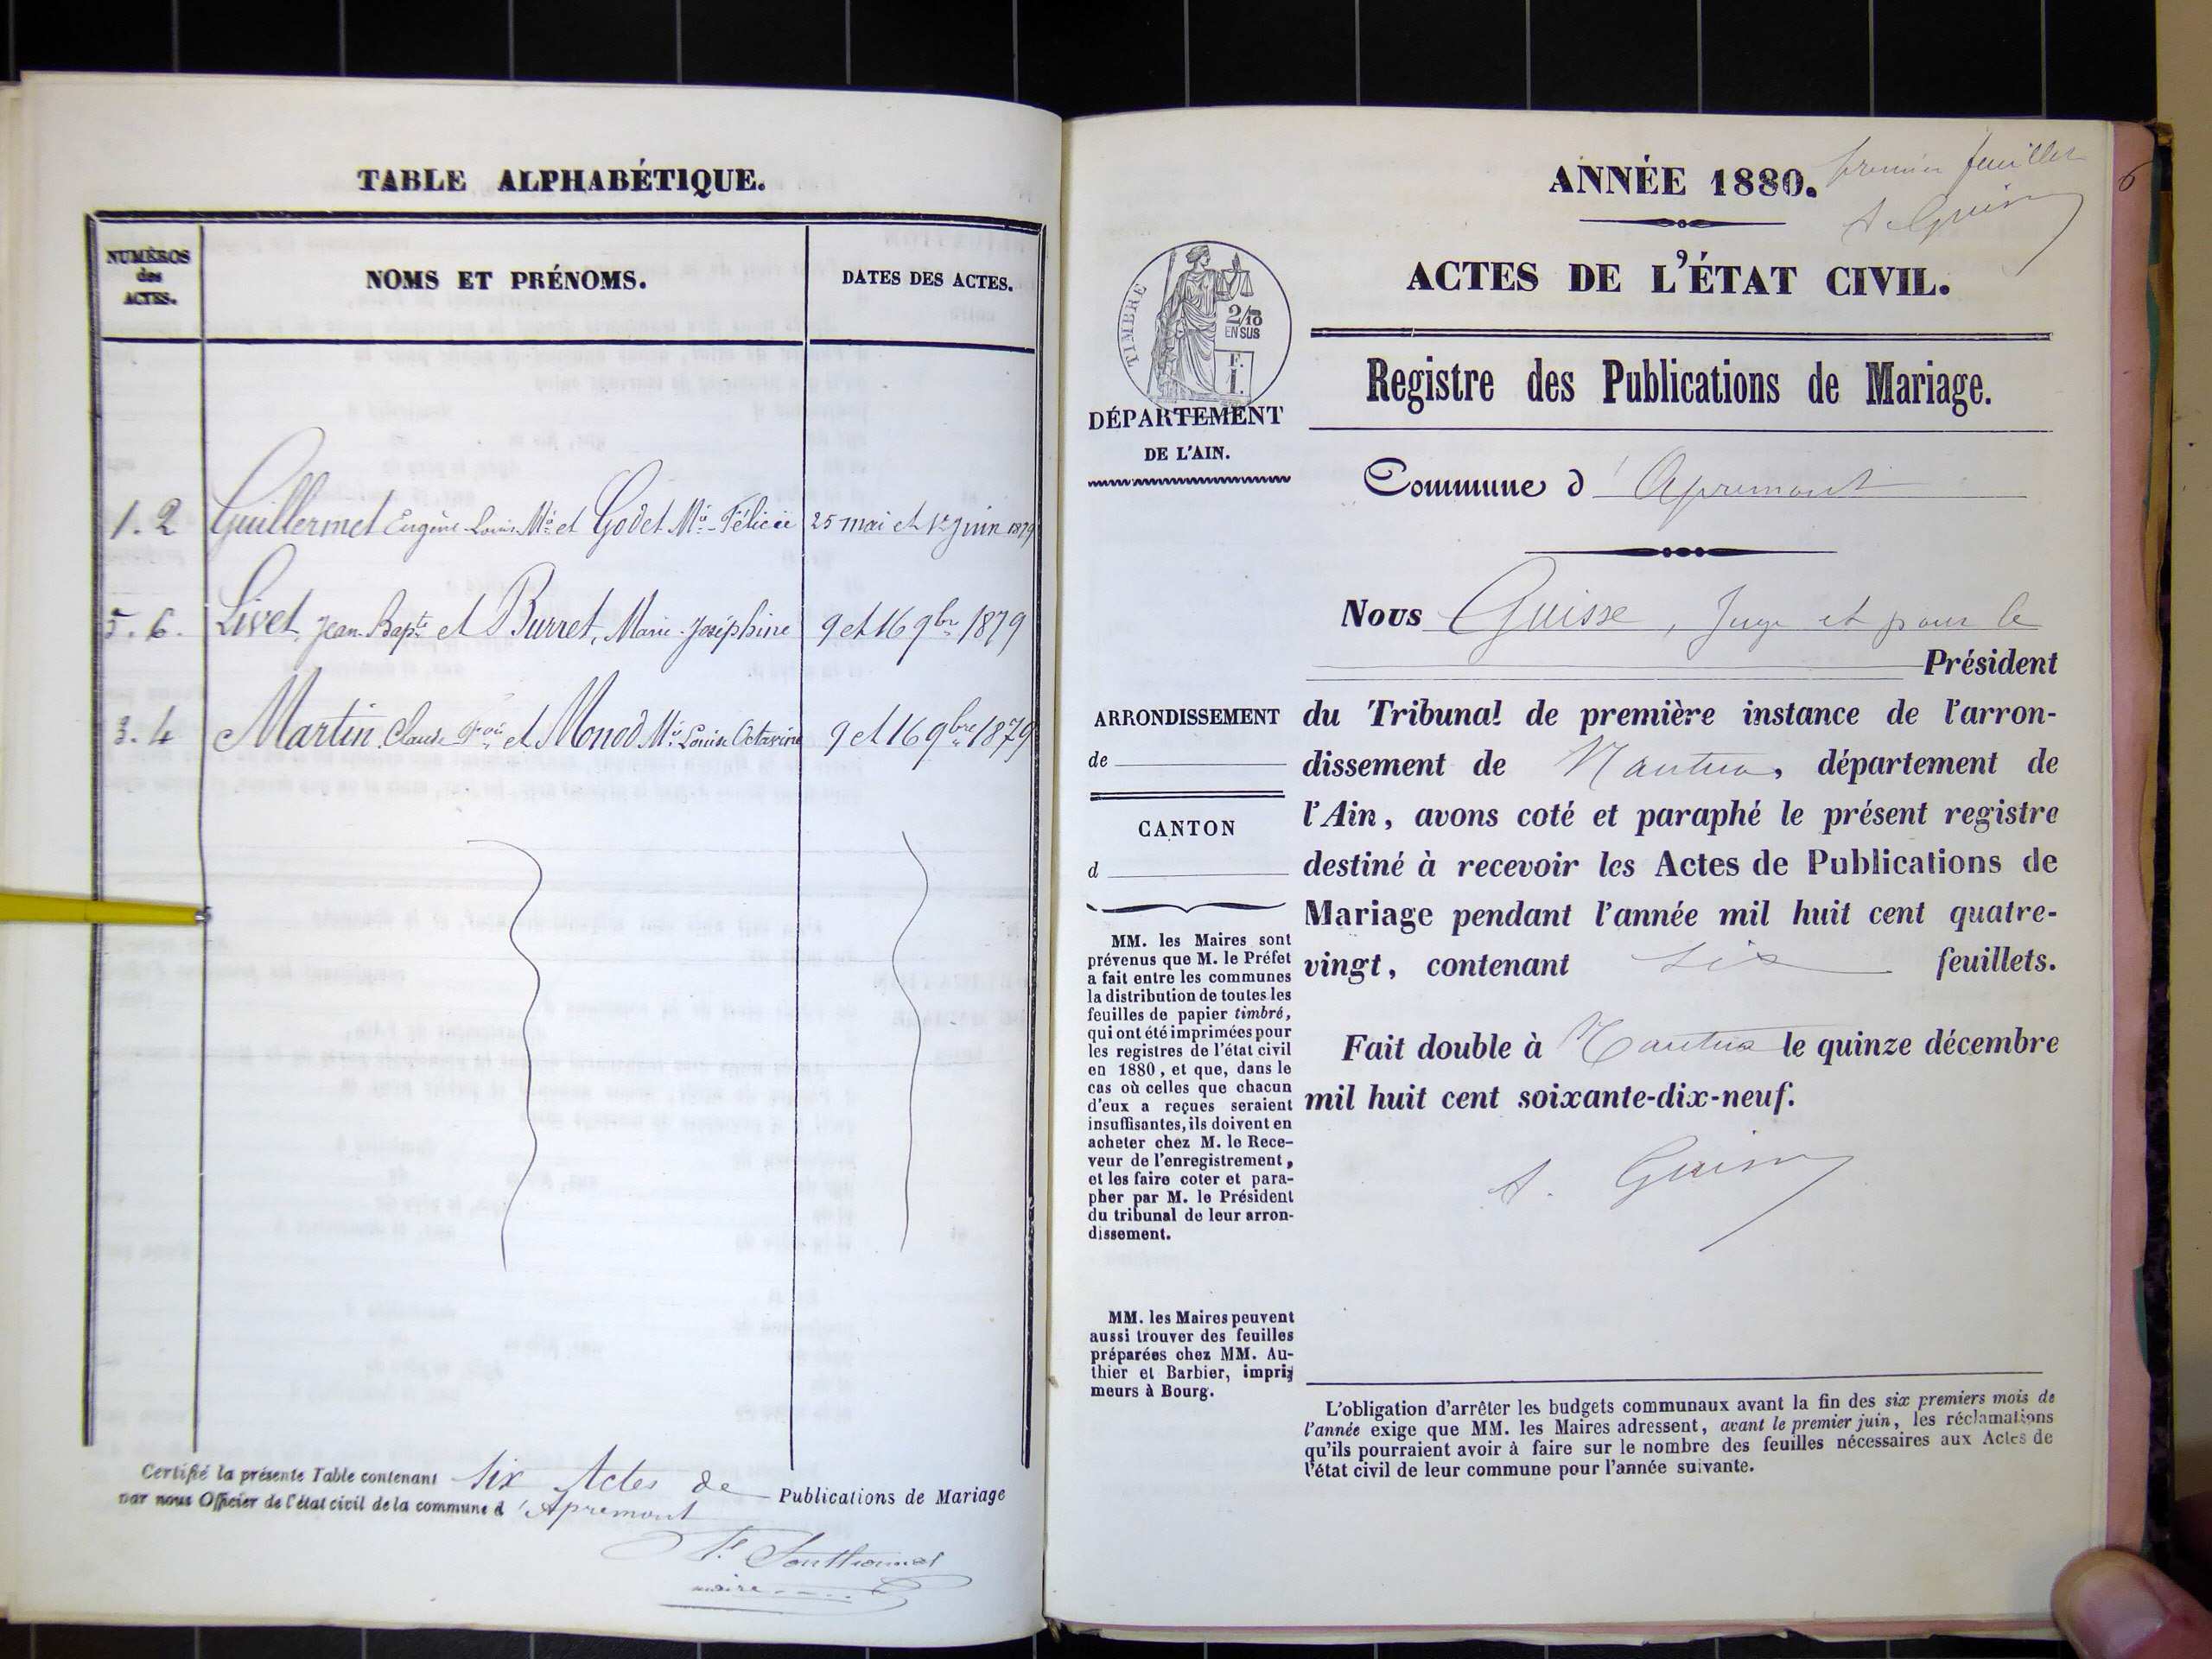 TABLE ALPHABÉTIQUE.
NUMÉROS
des
ACTES.
NOMS ET PRÉNOMS.
DATES DES ACTES.
1.2 Guillermet Eugène Louis Mie et Godet Mie Félicie 25 mai et 1er juin 1879
5.6. Livet, Jean-Bapte et Burret, Marie-Joséphine 9 et 16 9bre 1879
3.4 Martin, Claude Fçois et Monod Mie Louise Octavine 9 et 16 9bre 1879
Certifié la présente Table contenant six Actes de Publications de Mariage
par nous Officier de l'état civil de la commune d'Apremont
maire
ANNÉE 1880.
premier feuillet
6
ACTES DE L'ÉTAT CIVIL.
TIMBRE
2/10
EN SUS
F.
1.
DÉPARTEMENT
DE L'AIN.
Registre des Publications de Mariage.
Commune d'Apremont
Nous Guisse, Juge et pour le
Président
du Tribunal de première instance de l'arron-
dissement de Nantua, département de
l'Ain, avons coté et paraphé le présent registre
destiné à recevoir les Actes de Publications de
Mariage pendant l'année mil huit cent quatre-
vingt, contenant six feuillets.
Fait double à Nantua le quinze décembre
mil huit cent soixante-dix-neuf.
ARRONDISSEMENT
de
CANTON
d
MM. les Maires sont
prévenus que M. le Préfet
a fait entre les communes
la distribution de toutes les
feuilles de papier timbré,
qui ont été imprimées pour
les registres de l'état civil
en 1880, et que, dans le
cas où celles que chacun
d'eux a reçues seraient
insuffisantes, ils doivent en
acheter chez M. le Rece-
veur de l'enregistrement,
et les faire coter et para-
pher par M. le Président
du tribunal de leur arron-
dissement.
MM. les Maires peuvent
aussi trouver des feuilles
préparées chez MM. Au-
thier et Barbier, impri-
meurs à Bourg.
L'obligation d'arrêter les budgets communaux avant la fin des six premiers mois de
l'année exige que MM. les Maires adressent, avant le premier juin, les réclamations
qu'ils pourraient avoir à faire sur le nombre des feuilles nécessaires aux Actes de
l'état civil de leur commune pour l'année suivante.